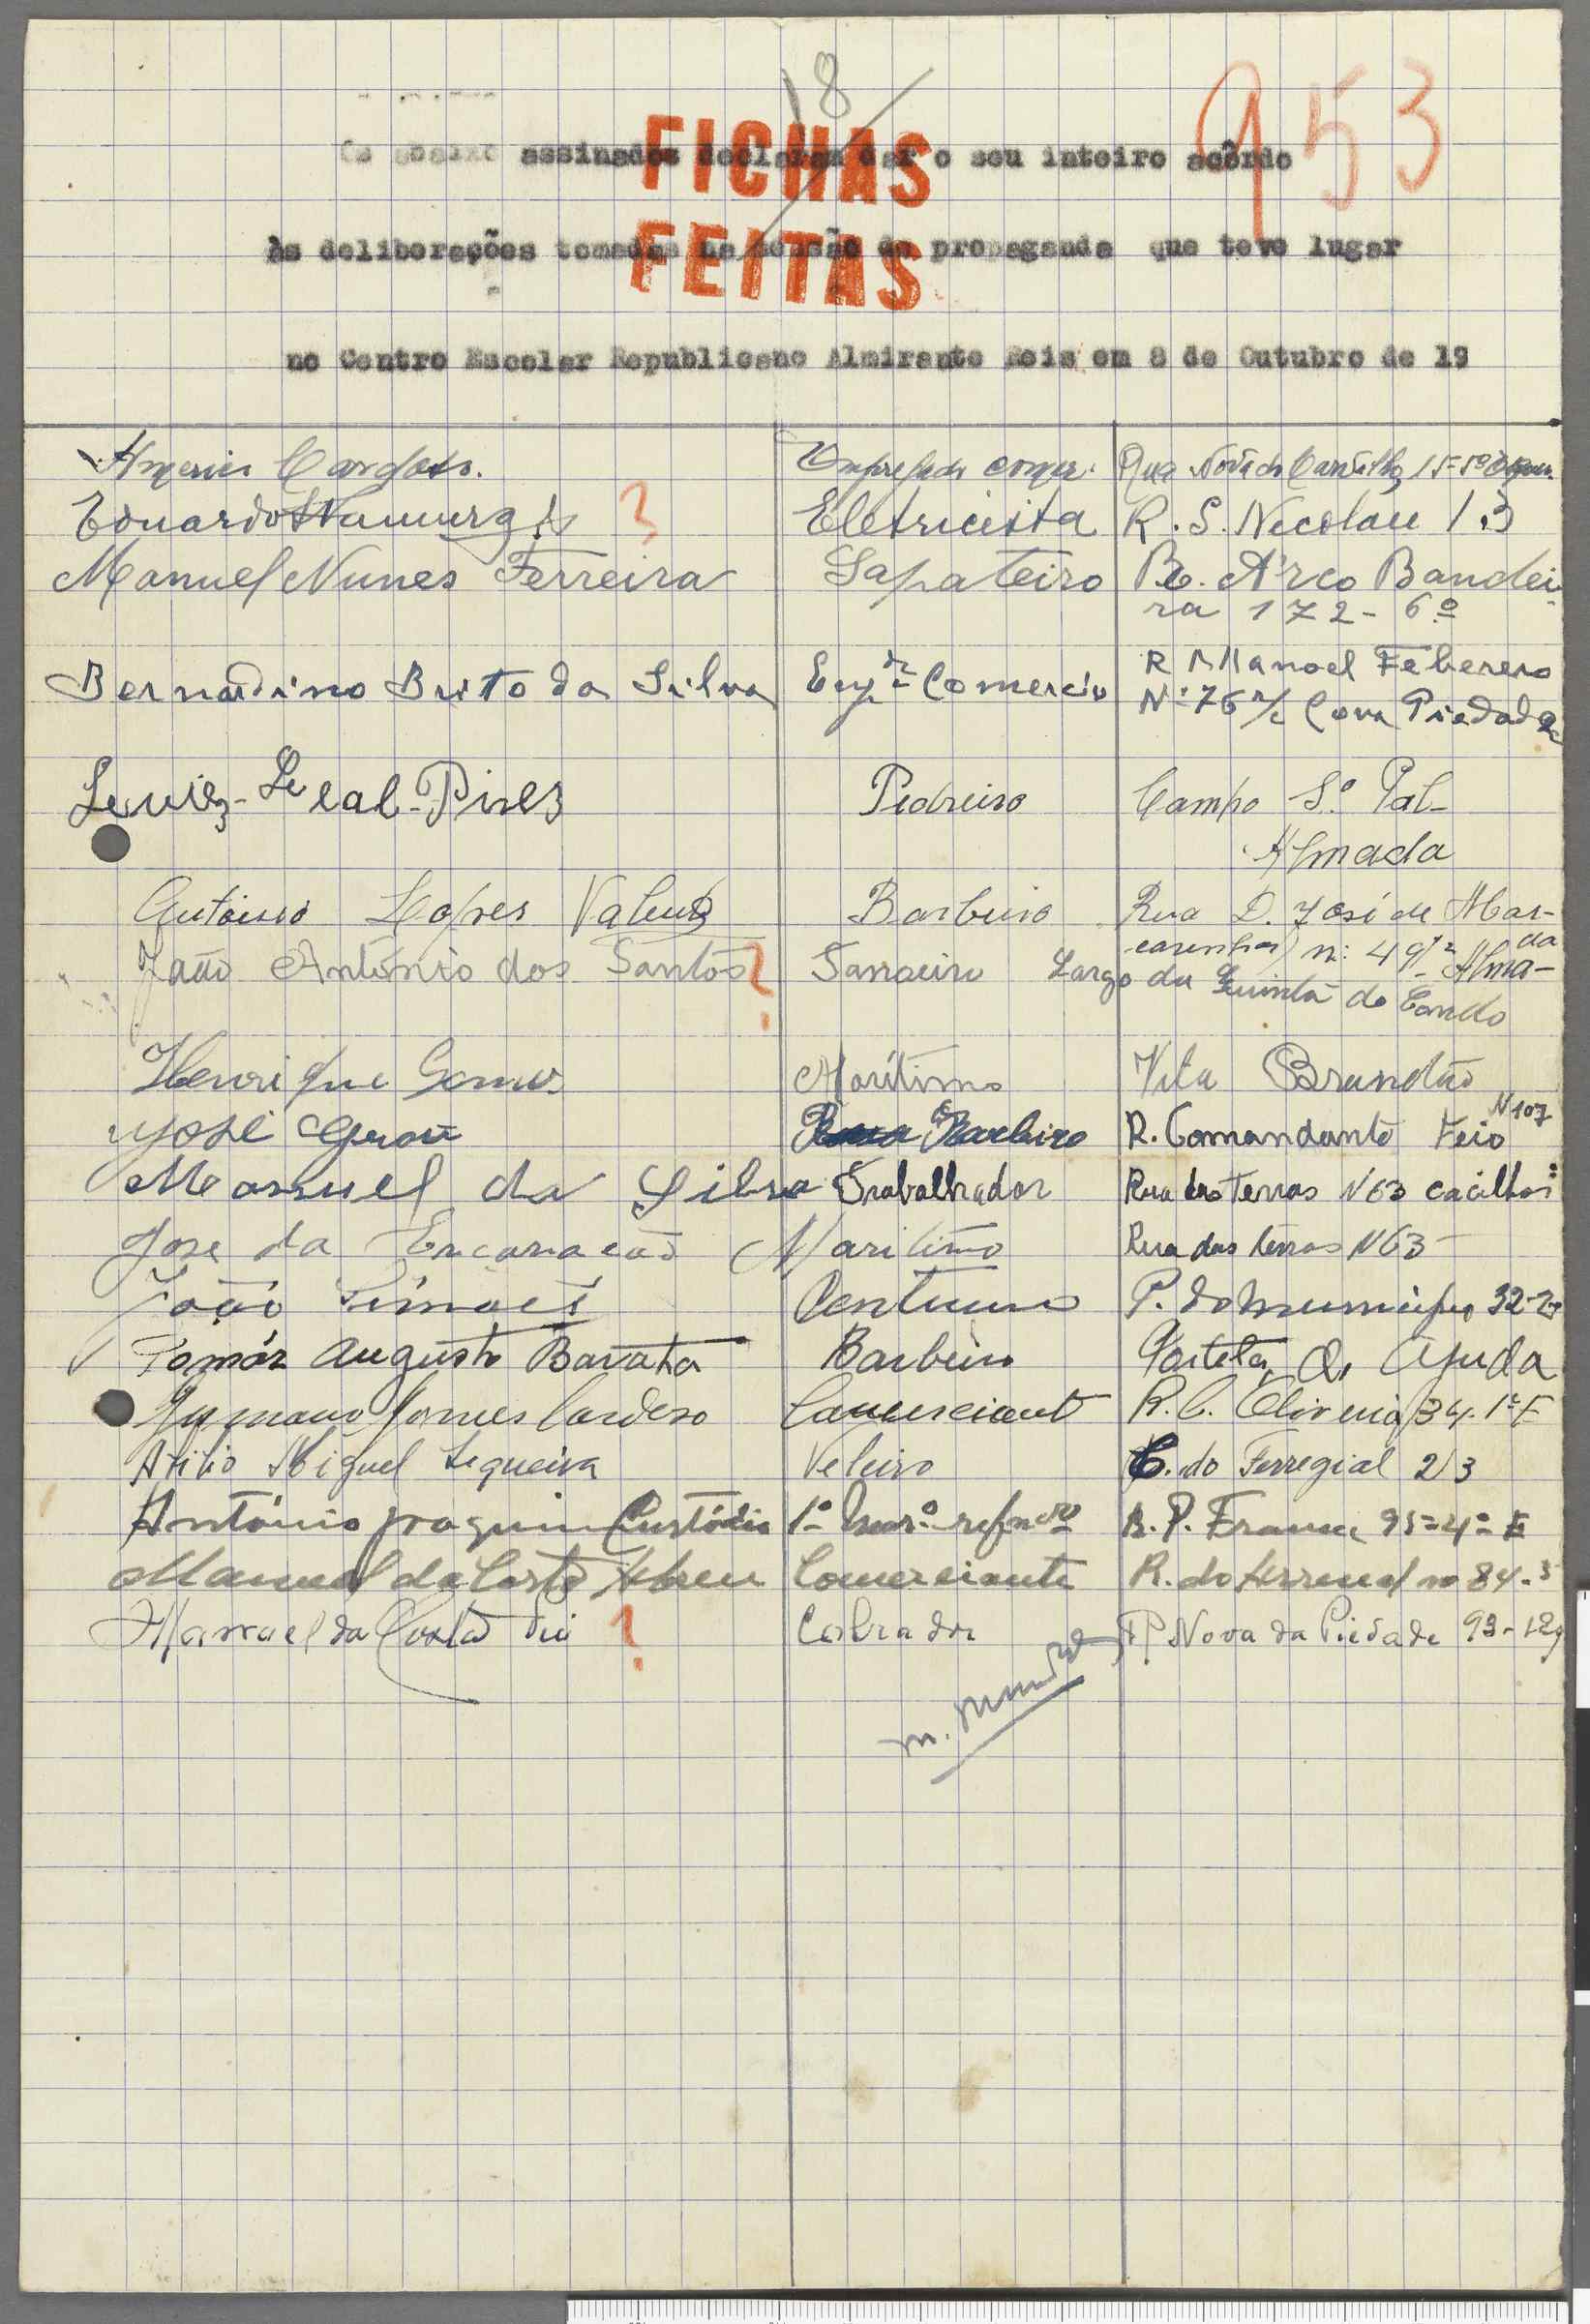 18
953
FICHAS
FEITAS
Os abaixo assinados declaram dar o seu inteiro acôrdo
às deliberações tomadas na sessão de propaganda que teve lugar
no Centro Escolar Republicano Almirante Reis em 8 de Outubro de 19
Americo Cardoso. Empregado comer. Rua Nova do Carvalho, 15-5º
Eduardo ? Eletricista R. S. Nicolau 13
Manuel Nunes Ferreira Sapateiro R. Arco Bandei
ra 172-6º
Bernardino Brito da Silva Empdo Comercio R Manoel Feberero
Nº 76 r/c Cova Piedade
Leal-Pires Pedreiro Campo S.º Pal-
Almada
António Lopes Barbeiro Rua D. José de Mas-
carenhas nº 49
João António dos Santos ? Largo da Quinta do Almada
Henrique Gomes Marítimo Vila Brandão
José Barbeiro R. Comandante Feio N 107
Manuel da Silva Trabalhador Rua das Terras N 63 Cacilhas
Jose da Encarnacão Maritimo Rua das terras N 63
João Simões P. do Municipio 32-2º
Tomáz Augusto Barata Barbeiro Portela, Q, Ajuda
Germano Gomes Cardoso Comerciante R. C. Oliveira 34. 1º E
Atilio Miguel Sequeira Veleiro C. do Ferregial 23
António Joaquim Custódio 1º R. P. França 95-4º E
Manuel da Costa Abreu Comerciante R. do Arsenal nº 84-3
Manuel da Costa ? Cobrador T. Nova da Piedade 93-